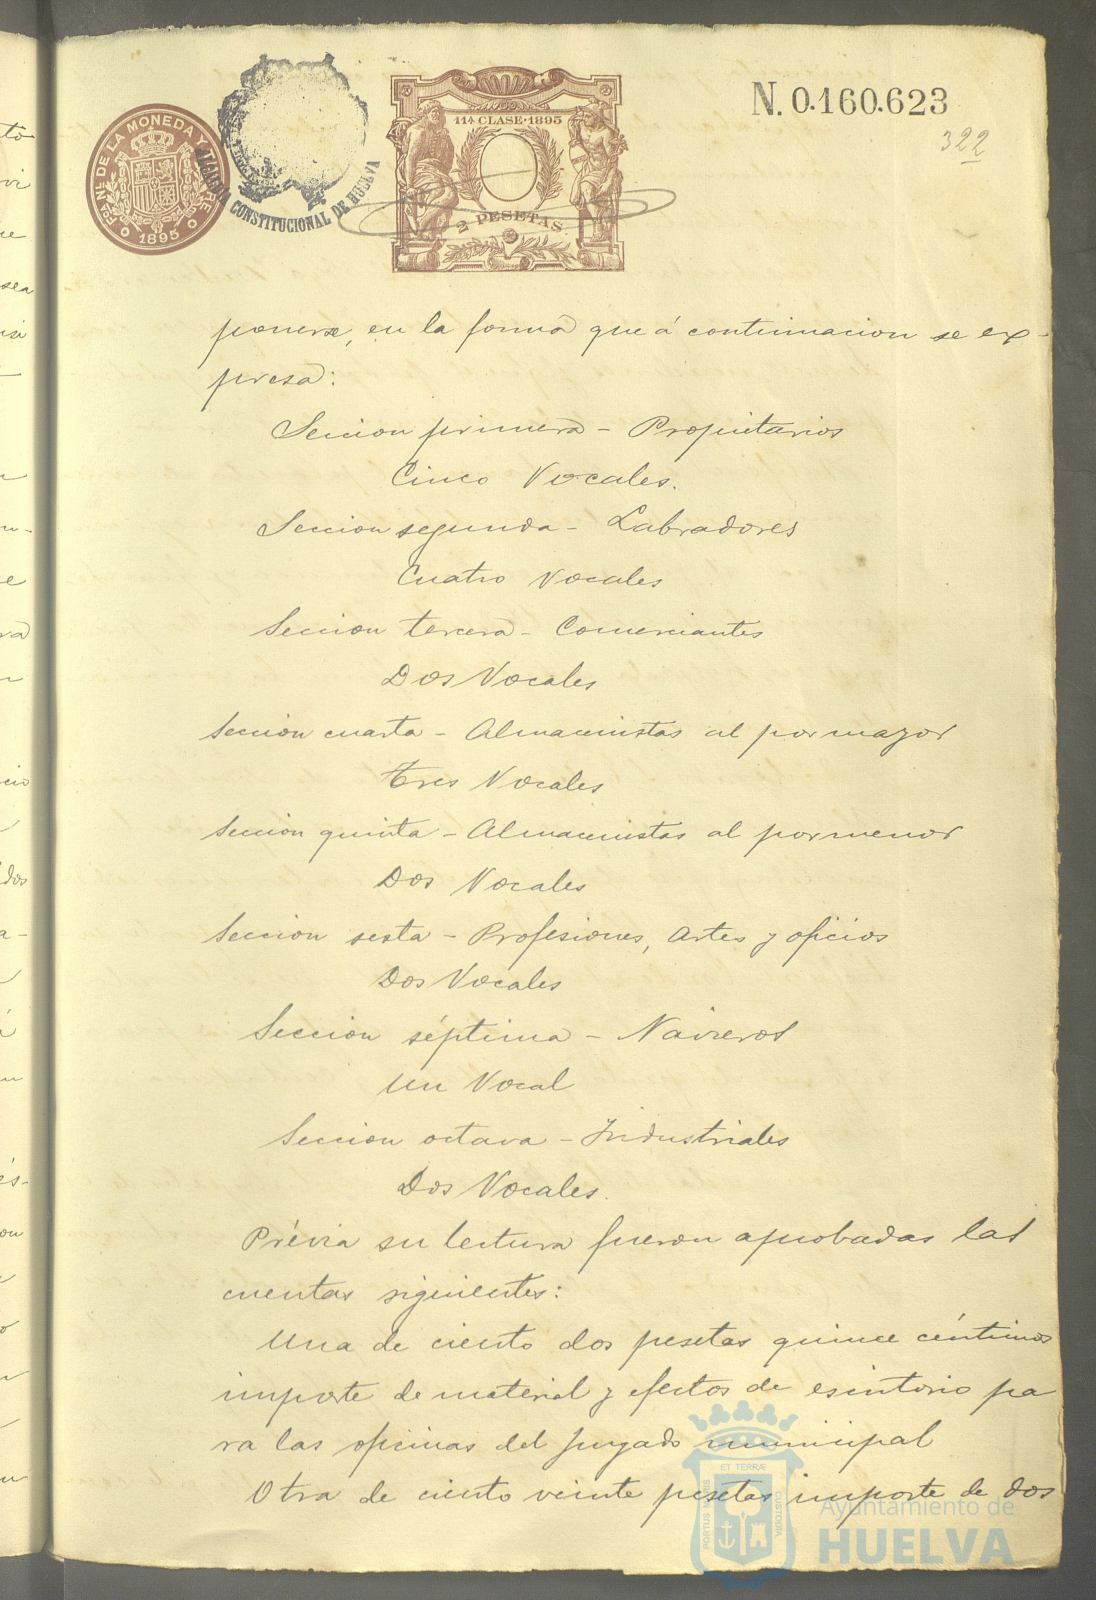 N. 0.160.623
322
Fca. Nl. DE LA MONEDA Y TIMBRE
1895
ALCALDIA CONSTITUCIONAL DE HUELVA
11ª CLASE·1895
2 PESETAS
ponerse, en la forma que á continuacion se ex-
presa:
Seccion primera - Propietarios
Cinco Vocales.
Seccion segunda - Labradores
Cuatro Vocales
Seccion tercera - Comerciantes
Dos Vocales
Seccion cuarta - Almacenistas al por mayor
Tres Vocales
Seccion quinta - Almacenistas al por menor
Dos Vocales
Seccion sesta - Profesiones, Artes y oficios
Dos Vocales
Seccion séptima - Navieros
Un Vocal
Seccion octava - Industriales
Dos Vocales.
Prévia su lectura fueron aprobadas las
cuentas siguientes:
Una de ciento dos pesetas quince céntimos
importe de material y efectos de escritorio pa
ra las oficinas del Juzgado municipal
Otra de ciento veinte pesetas importe de dos
PORTUS MARIS ET TERRÆ CUSTODIA
Ayuntamiento de
HUELVA